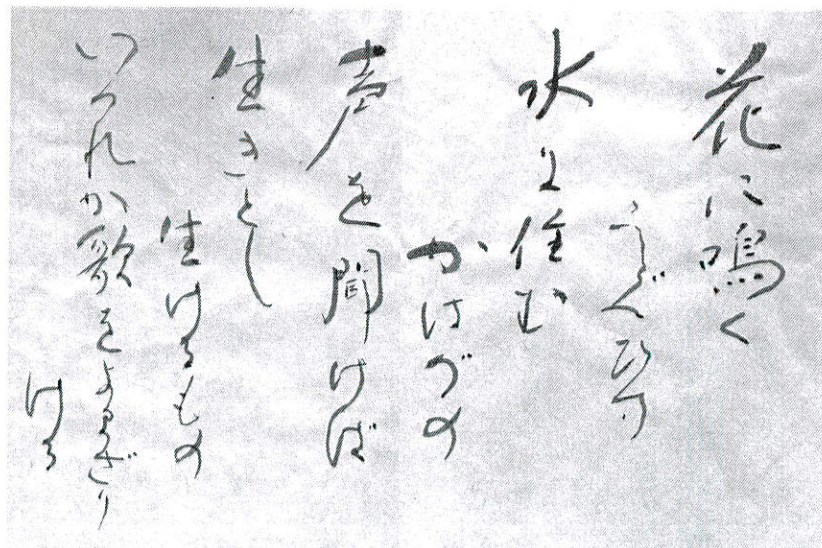 花に鳴く
うぐひす
水に住む
かはづの
声を聞けば
生きとし
生けるもの
いづれか歌をよまざり
ける